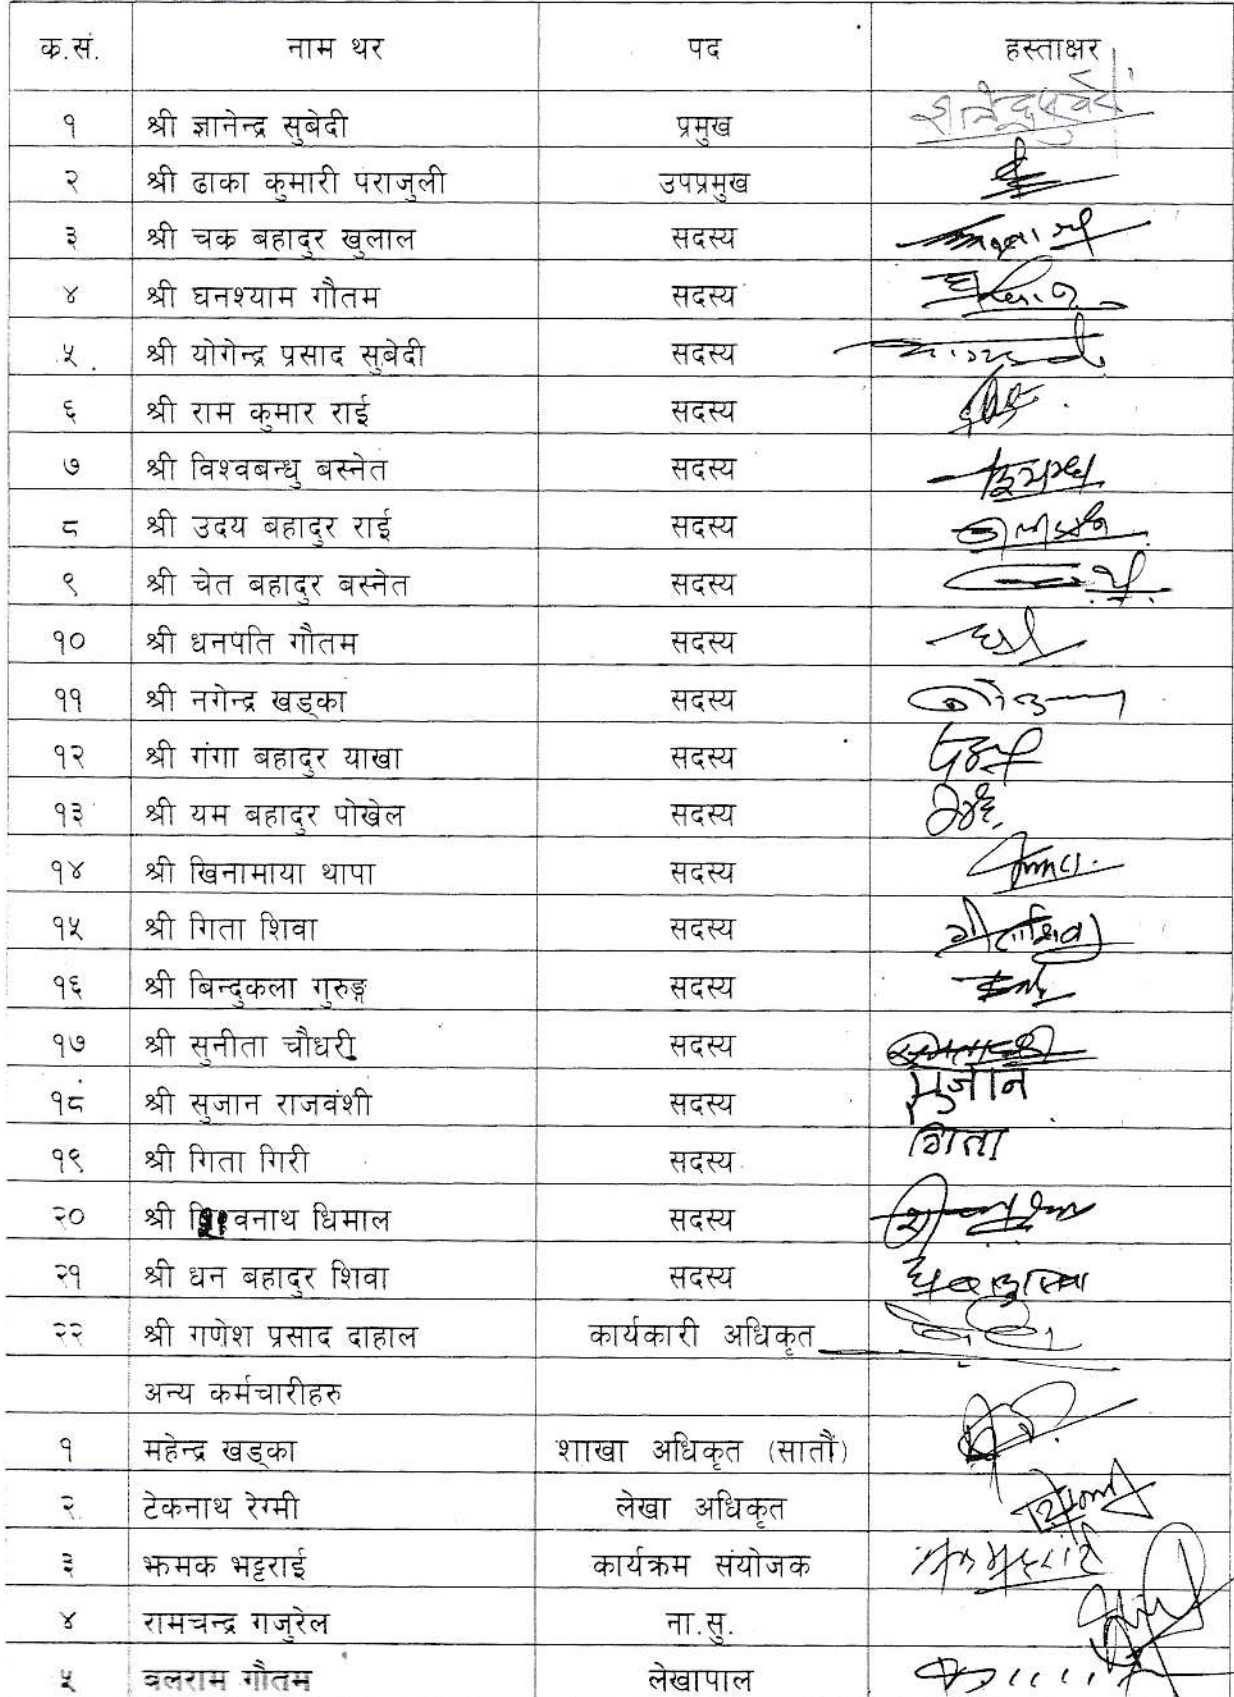 क.सं. नाम थर पद हस्ताक्षर
१ श्री ज्ञानेन्द्र सुबेदी प्रमुख
२ श्री ढाका कुमारी पराजुली उपप्रमुख
३ श्री चक्र बहादुर खुलाल सदस्य
४ श्री घनश्याम गौतम सदस्य
५ श्री योगेन्द्र प्रसाद सुबेदी सदस्य
६ श्री राम कुमार राई सदस्य
७ श्री विश्वबन्धु बस्नेत सदस्य
८ श्री उदय बहादुर राई सदस्य
९ श्री चेत बहादुर बस्नेत सदस्य
१० श्री धनपति गौतम सदस्य
११ श्री नगेन्द्र खड्का सदस्य
१२ श्री गंगा बहादुर याखा सदस्य
१३ श्री यम बहादुर पोखेल सदस्य
१४ श्री खिनामाया थापा सदस्य
१५ श्री गिता शिवा सदस्य गीता शिवा
१६ श्री बिन्दुकला गुरुङ्ग सदस्य
१७ श्री सुनीता चौधरी सदस्य
१८ श्री सुजान राजवंशी सदस्य सुजान
१९ श्री गिता गिरी सदस्य गिता
२० श्री धिमाल सदस्य
२१ श्री धन बहादुर शिवा सदस्य
२२ श्री गणेश प्रसाद दाहाल कार्यकारी अधिकृत
अन्य कर्मचारीहरु
१ महेन्द्र खड्का शाखा अधिकृत (सातौं)
२ टेकनाथ रेग्मी लेखा अधिकृत
३ झमक भट्टराई कार्यक्रम संयोजक
४ रामचन्द्र गजुरेल ना.सु.
५ बलराम गौतम लेखापाल